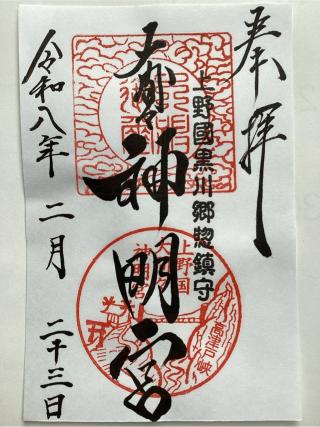 奉拝
上野國黒川郷惣鎮守
神明宮
令和八年二月二十三日
上野国
神明宮
高津戸峡